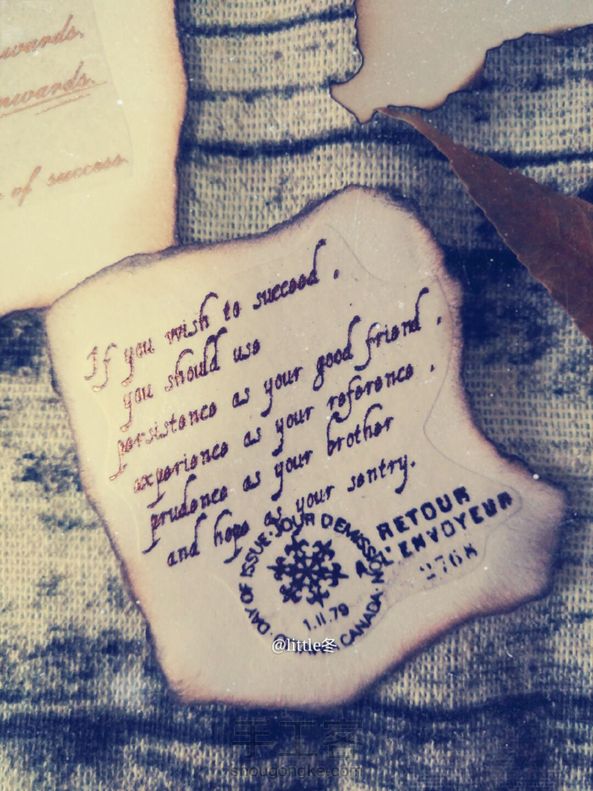 wards.
nwards.
of success.
If you wish to succeed,
you should use
persistence as your good friend,
experience as your reference,
prudence as your brother
and hope as your sentry.
DAY OF ISSUE · JOUR D'EMISSION
CANADA
1.11.79
RETOUR
A L'ENVOYEUR
2768
@little冬
手工客
shougongke.com